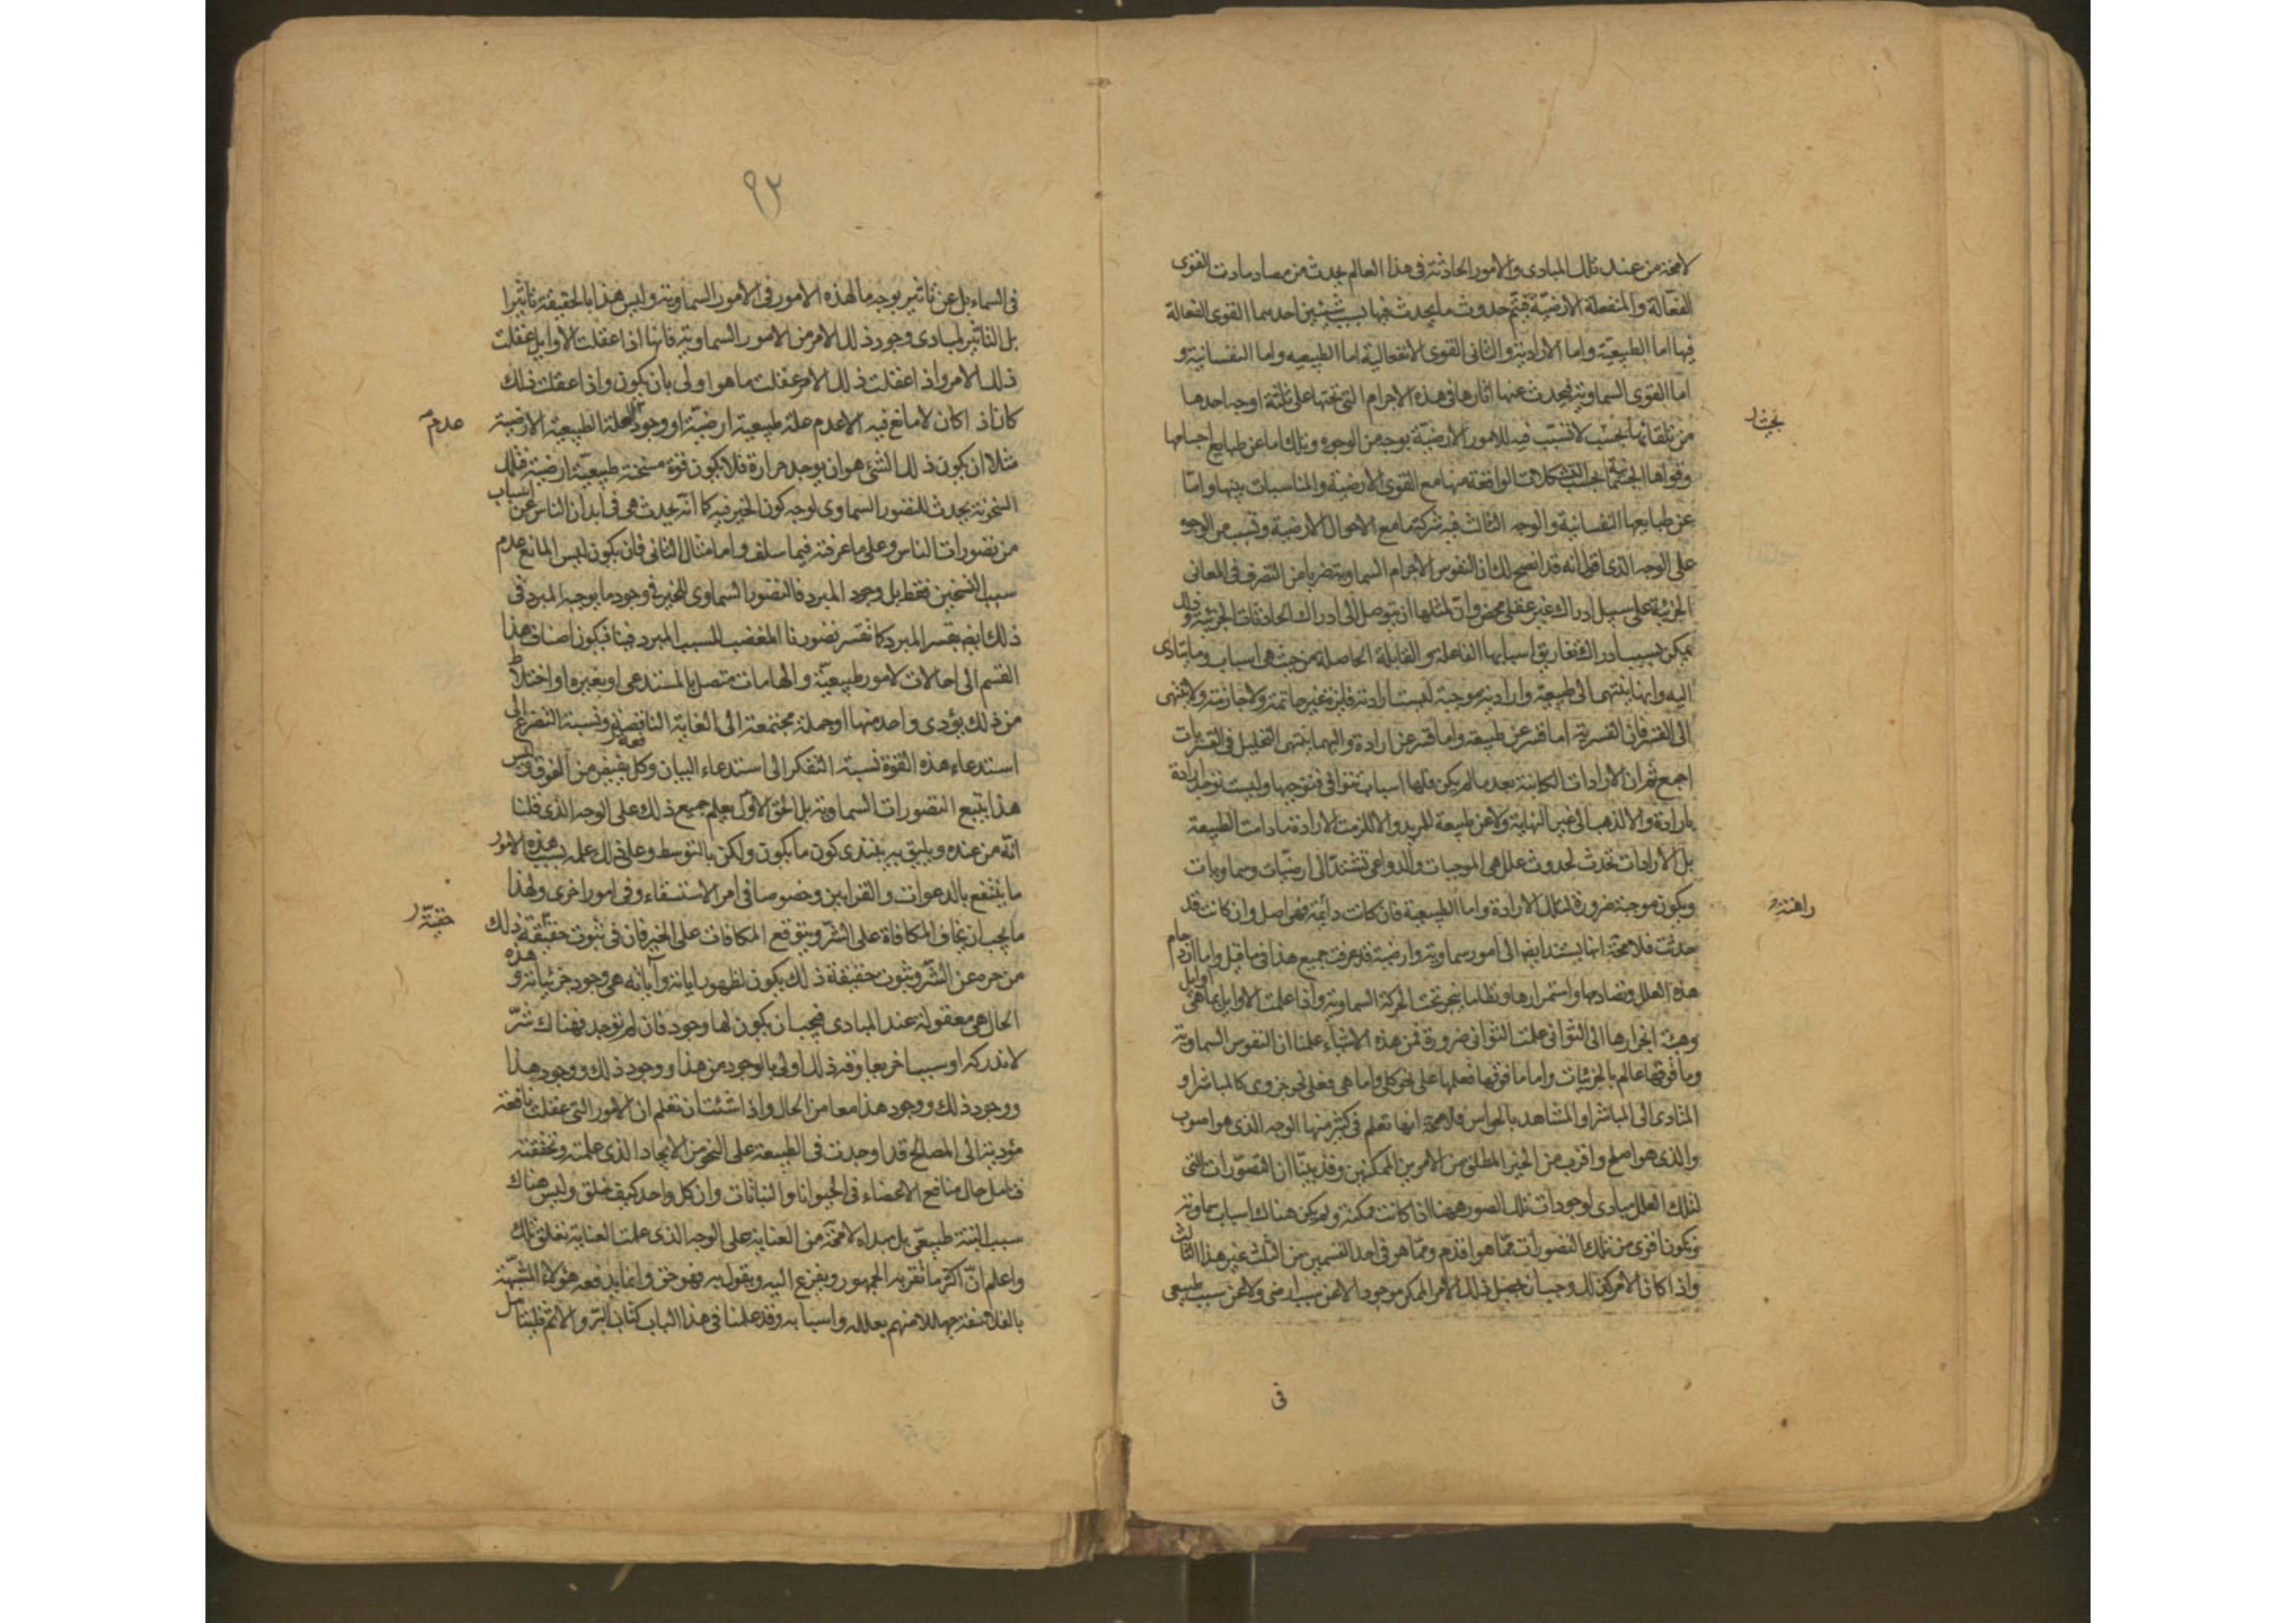 لامحة من عند تلك المبادى والامور الحادثة فى هذا العالم يحدث من مصادمات القوى
الفعالة والمنفعلة الارضيّة فيتم حدوث ما يحدث فيها بسبب شيئين احدهما القوى الفعالة
فيها اما الطبيعيّة واما الارادية والثانى القوى الانفعالية اما الطبيعيه واما النفسانية و
امّا القوى السماوية فيحدث عنها اثارها فى هذه الاجرام التى تحتها على ثلثة اوجه احدها
من تلقائها بحيث لا تسبّب فيه للامور الارضيّة بوجه من الوجوه وتلك اما عن طبايع اجسامها
وقواها الجسمانية بحسب التشكلات الواقعة منها مع القوى الارضية والمناسبات بينها وامّا
عن طبايعها النفسانية والوجه الثالث فيه شركة ما مع الاحوال الارضية وتسبب من الوجوه
على الوجه الذى اقول انه قد اتضح لك ان النفوس الاجرام السماوية ضربا من التصرف فى المعانى
الجزئية على سبيل ادراك غير عقلى محض وان لمثلها ان يتوصل الى ادراك الحادثات الجزئية وذلك
يمكن بسبب ادراك تفاريق اسبابها الفاعلة والقابلة الحاصلة من حيث هى اسباب وما يتادى
اليه وانها ينتهى الى طبيعة وارادية موجبة ليست ارادية فاترة غير حاتمة ولا جازمة ولا تنتهى
الى القسر فان القسرية اما قسر عن طبيعة واما قسر عن ارادة واليهما ينتهى التحليل فى القسريات
اجمع ثم ان الارادات الكاينة بعد ما لم يكن فلها اسباب تتوافى فتوجبها وليست توجد ارادة
بارادة والا لذهب الى غير النهاية ولا عن طبيعة للمريد والا للزمت الارادة ما دامت الطبيعة
بل الارادات تحدث لحدوث علل هى الموجبات والدواعى تستند الى ارضيّات وسماويات
ويكون موجبة ضرورة لتلك الارادة واما الطبيعية فان كانت دايمة فهى اصل وان كانت قد
حدثت فلا محّة انها يستند ايضا الى امور سماوية وارضية قد عرفت جميع هذا فى ما قبل واما ازدحام
هذه العلل وتصادمها واستمرارها ونظاما ينجر تحت الحركة السماوية واذا علمت الاوايل بما هى اوايل
وهيئة انجرارها الى الثوانى علمت الثوانى ضرورة فمن هذه الاشياء علمنا ان النفوس السماوية
وما فوقها عالم بالجزئيات واما ما فوقها فعلمها على نحو كلى واما هى فعلى نحو جزوى كالمباشر او
المتادى الى المباشر او المشاهد بالحواس فلا محّة انها تعلم فى كثير منها الوجه الذى هو اصوب
والذى هو اصلح واقرب من الخير المطلق من الامرين الممكنين وقد بيّنا ان التصوّرات التى
لتلك العلل مبادى لوجودات تلك الصور ههنا اذا كانت ممكنة ولم يكن هناك اسباب سماوية
تكون اقوى من تلك التصورات ممّا هو اقدم وممّا هو فى احد القسمين من الثلث غير هذا الثالث
واذا كان الامر كذلك وجب ان يحصل ذلك الامر الممكن موجودا لا عن سبب ارضى ولا عن سبب طبيعى
فى
نجيث ر
راهنة ر
٩٣
فى السماء بل عن تاثير بوجه ما لهذه الامور فى الامور السماوية وليس هذا بالحقيقة تاثيرا
بل التاثير لمبادى وجود ذلك الامر من الامور السماوية فانها اذا عقلت الاوايل عقلت
ذلك الامر واذا عقلت ذلك الامر عقلت ما هو اولى بان يكون واذا عقلت ذلك
كان اذ كان لا مانع فيه الا عدم علة طبيعية ارضيّة او وجود العلة الطبيعية الارضية
مثلا ان يكون ذلك الشئ هو ان يوجد حرارة فلا يكون قوة مسخنة طبيعيّة ارضية فتلك
السخونة يحدث للتصور السماوى لوجه كون الخير فيه كما انّه يحدث هى فى ابدان الناس عن اسباب
من تصورات الناس وعلى ما عرفته فيما سلف واما مثال الثانى فان يكون ليس المانع عدم
سبب التسخين فقط بل وجود المبرد فالتصور السماوى للخير فى وجود ما يوجبه المبرد فى
ذلك ايضا يقسر المبرد كما تقسر تصورنا المغضب السبب المبرد فينا فيكون اصناف هذا
القسم الى احالات لامور طبيعيّة والهامات متصل بالمستدعى او بغيره او اختلاط
من ذلك يؤدى واحد منها او جملة مجتمعة الى الغاية النافعة ونسبة التضرع الى
استدعاء هذه القوة نسبة التفكر الى استدعاء البيان وكل يفيض من الفوق وليس
هذا يتبع التصورات السماوية بل الحق الاول يعلم جميع ذلك على الوجه الذى قلنا
انّه من عنده ويليق به يبتدى كون ما يكون ولكن بالتوسط وعلى ذلك علمه بسبب هذه الامور
ما ينتفع بالدعوات والقرابين وخصوصا فى امر الاستسقاء وفى امور اخرى ولهذا
ما يجب ان يخاف المكافاة على الشرّ ويتوقع المكافات على الخير فان فى ثبوت حقيقة ذلك
من جره عن الشرّ وثبوت حقيقة ذلك يكون لظهور اياته وآياته هى وجود جزئياته وهذه
الحال هى معقولة عند المبادى فيجب ان يكون لها وجود فان لم توجد فهناك شرّ
لا ندركه او سبب اخر يعاوقه ذلك اولى بالوجود من هذا ووجود ذلك ووجود هذا
ووجود ذلك ووجود هذا معا من الحال واذا شئت ان تعلم ان الامور التى عقلت نافعة
مؤدية الى المصالح قد اوجدت فى الطبيعة على النحو من الايجاد الذى علمته وتحققته
فتامل حال منافع الاعضاء فى الحيوانا والنباتات وان كل واحد كيف خلق وليس هناك
سبب البتة طبيعى بل مبداه لا محّة من العناية على الوجه الذى علمت العناية تعلق تلك
واعلم انّ اكثر ما تقر به الجمهور ويفزع اليه ويقول به فهو حق وانما يدفعه هؤلاء المتشبّهة
بالفلاسفة جهلا منهم بعلله واسبابه وقد علمنا فى هذا الباب كتاب البرّ والاثم فليتامل
عدم
حقيّة ر